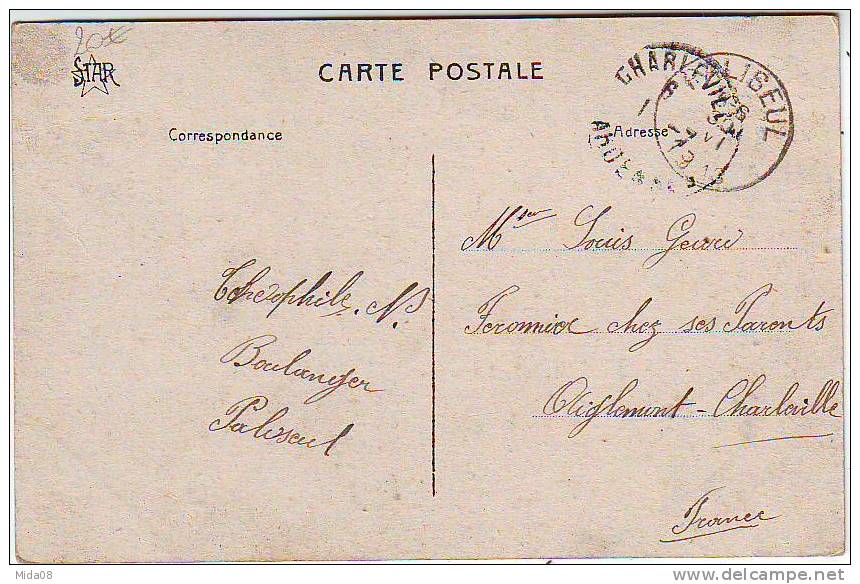 20€
STAR
CARTE POSTALE
Correspondance
Adresse
CHARLEVILLE
ARDENNES
PALISEUL
1913
Théophile. N.
Boulanger
Paliseul
Mr Louis
chez ses Parents
Aiglemont - Charleville
France
Mida08
delcampe.net